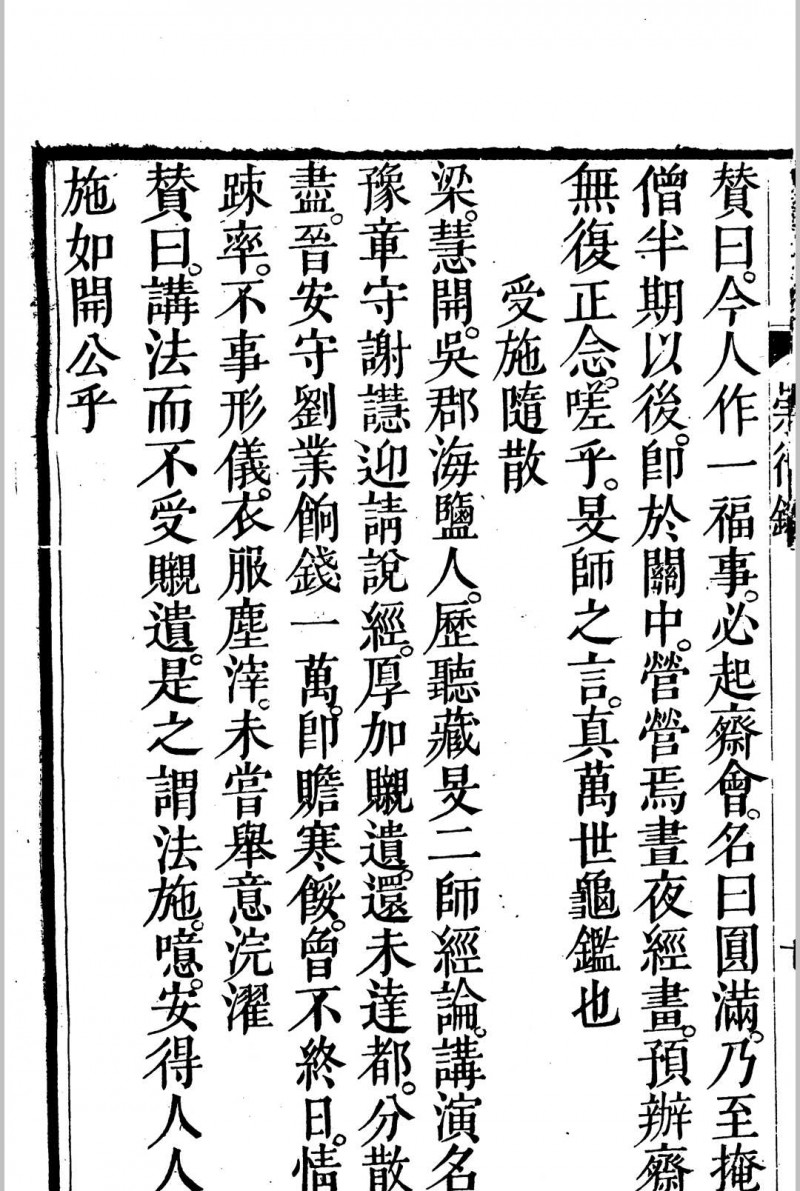 贊曰。今人作一福事。必起齋會。名曰圓滿。乃至掩
僧半期以後。即於關中。營營焉晝夜經畫。預辦齋
無復正念。嗟乎。旻師之言。真萬世龜鑑也
受施隨散
梁。慧開。吳郡海鹽人。歷聽藏旻二師經論。講演名
豫章守謝譓迎請說經。厚加嚫遺。還未達都。分散
盡。晉安守劉業餉錢一萬。即贍寒餒。曾不終日。情
踈率。不事形儀。衣服塵滓。未嘗舉意浣濯
贊曰。講法而不受嚫遺。是之謂法施。噫。安得人人
施如開公乎